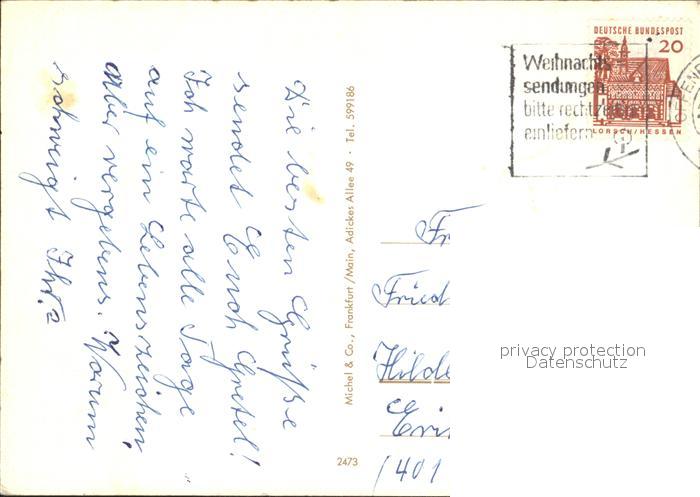 Die besten Grüße
sendet Euch Gretel!
Ich warte alle Tage
auf ein Lebenszeichen,
Aber vergebens. Warum
schweigt Ihr?
Michel & Co., Frankfurt/Main, Adickes Allee 49 · Tel. 599186
2473
Weihnachts
sendungen
bitte rechtzeitig
einliefern
DEUTSCHE BUNDESPOST
20
LORSCH/HESSEN
Fr
Fried
Hilde
(401
privacy protection
Datenschutz